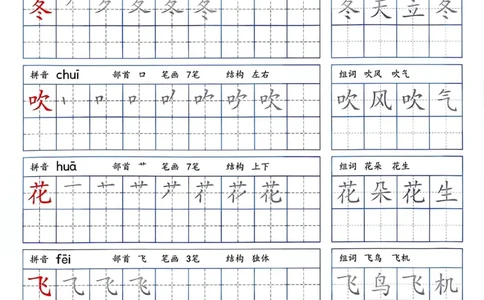 冬 冬 冬 冬 天 立 冬
拼音 chuī 部首 口 笔画 7笔 结构 左右 组词 吹风 吹气
吹 吹 吹 风 吹 气
拼音 huā 部首 艹 笔画 7笔 结构 上下 组词 花朵 花生
花 花 花 朵 花 生
拼音 fēi 部首 飞 笔画 3笔 结构 独体 组词 飞鸟 飞机
飞 飞 飞 鸟 飞 机